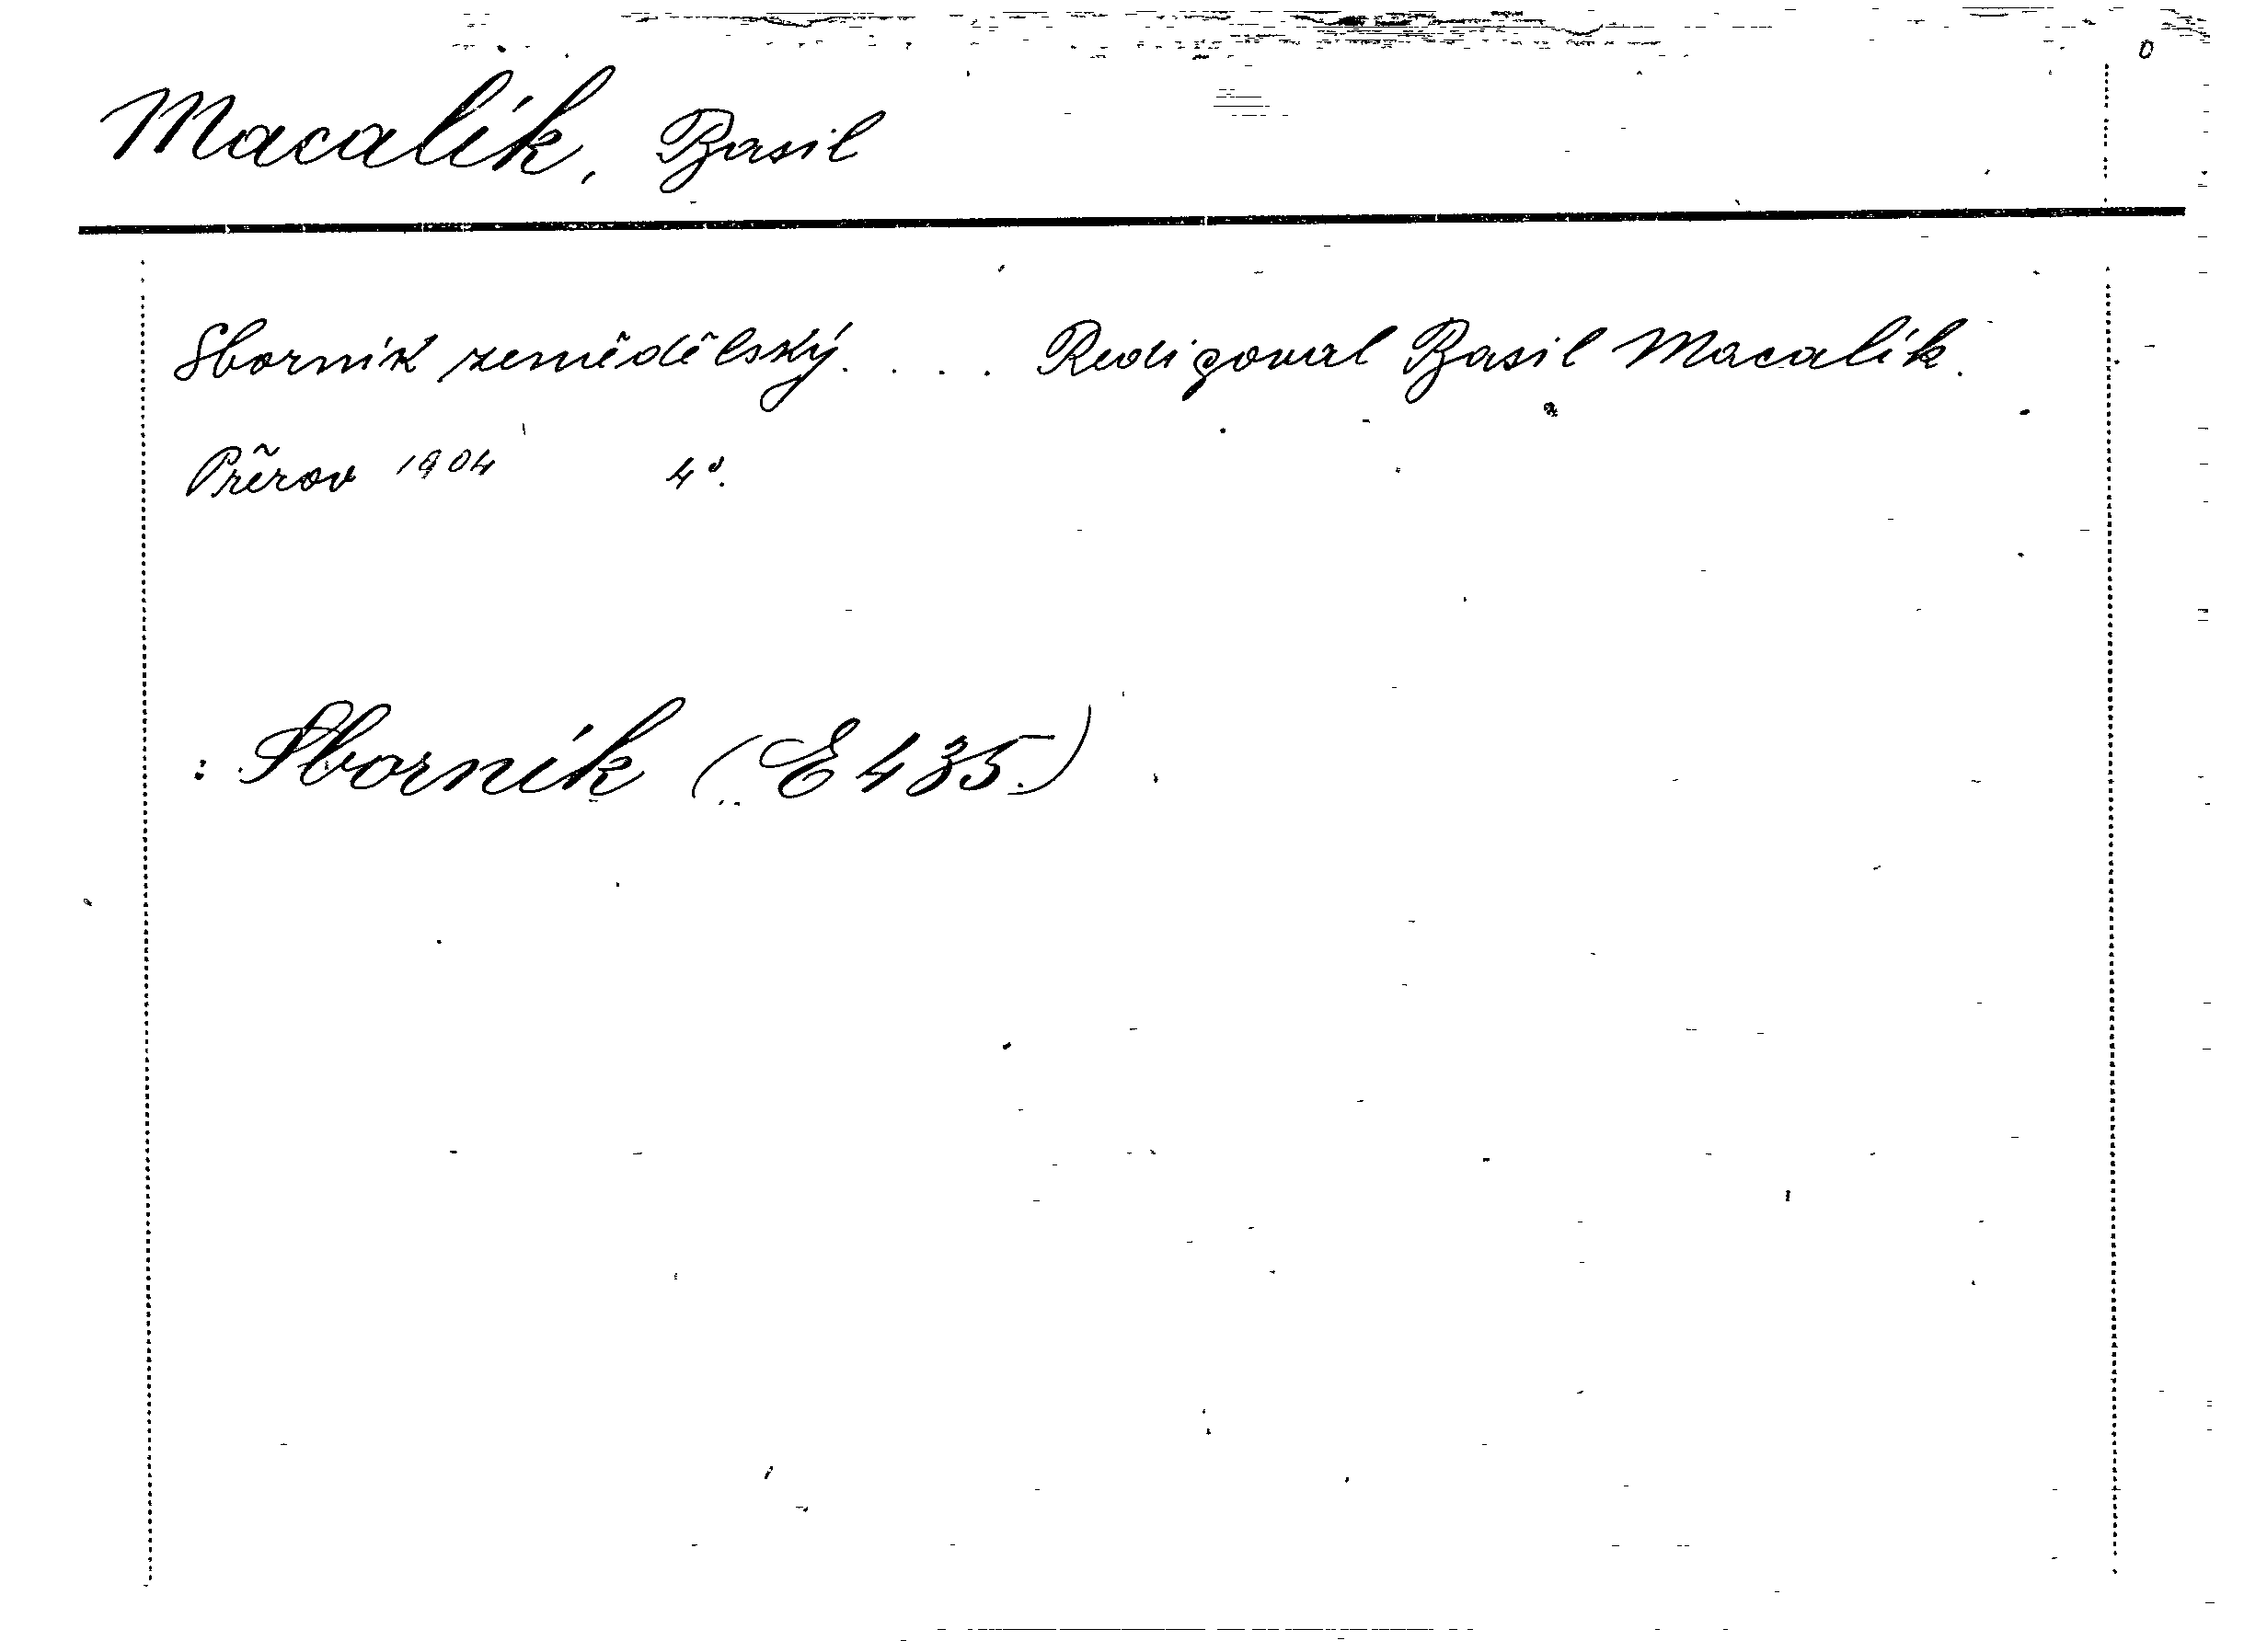 Macalík, Basil
Sborník zemědělský.... Redigoval Basil Macalík.
Přerov 1904 4°.
: Sborník (E 435.)